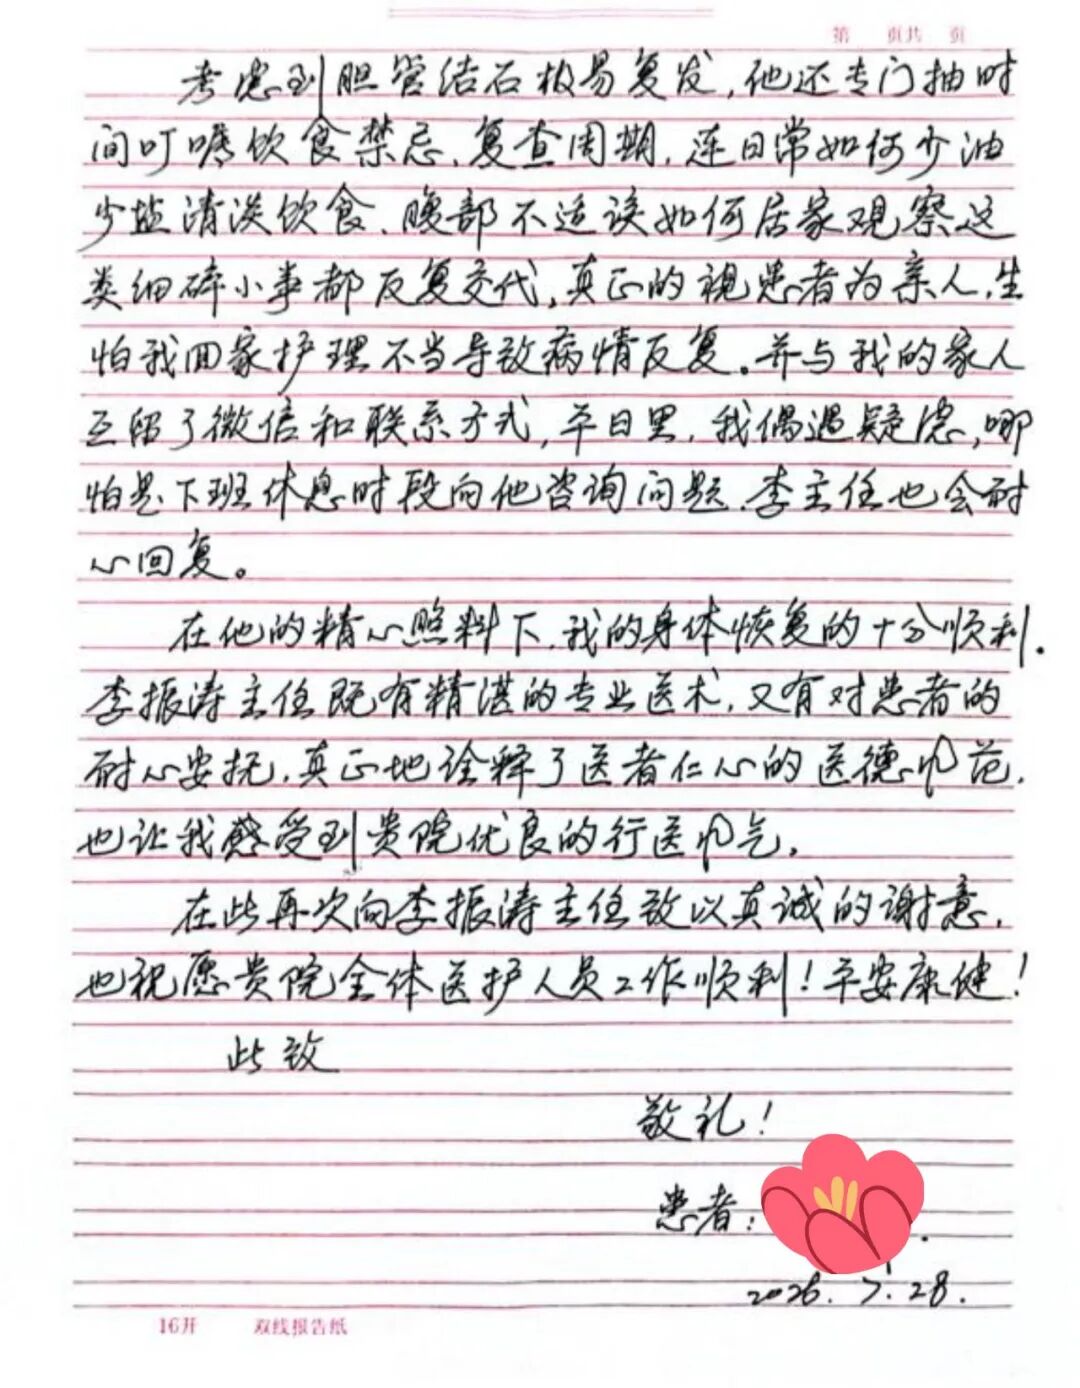 第 页共 页
考虑到胆管结石极易复发,他还专门抽时
间叮嘱饮食禁忌、复查周期,连日常如何少油
少盐清淡饮食、腹部不适该如何居家观察这
类细碎小事都反复交代,真正的视患者为亲人,生
怕我回家护理不当导致病情反复。并与我的家人
互留了微信和联系方式,平日里,我偶遇疑虑,哪
怕是下班休息时段向他咨询问题,李主任也会耐
心回复。
在他的精心照料下,我的身体恢复的十分顺利.
李振涛主任既有精湛的专业医术,又有对患者的
耐心安抚,真正地诠释了医者仁心的医德风范,
也让我感受到贵院优良的行医风气.
在此再次向李振涛主任致以真诚的谢意,
也祝愿贵院全体医护人员工作顺利!平安康健!
此致
敬礼!
患者:
2026.7.28.
16开 双线报告纸